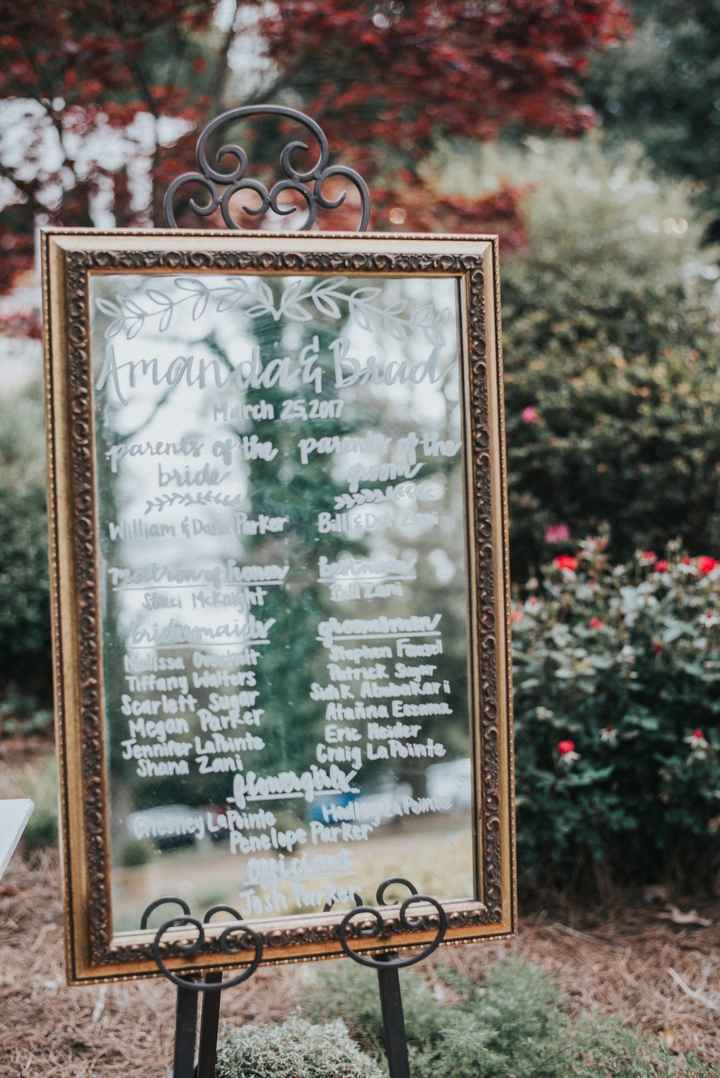 Amanda & Brad
March 25, 2017
parents of the
bride
William & Parker
parents of the
groom
Bill & Zani
matron of honor
Staci McKnight
bestman
Bill Zani
bridesmaids
Melissa
Tiffany Walters
Scarlett Sugar
Megan Parker
Jennifer LaPointe
Shana Zani
groomsmen
Stephen
Patrick Sugar
Eric Heider
Craig LaPointe
flowergirls
LaPointe
LaPointe
Penelope Parker
officiant
Josh Parker